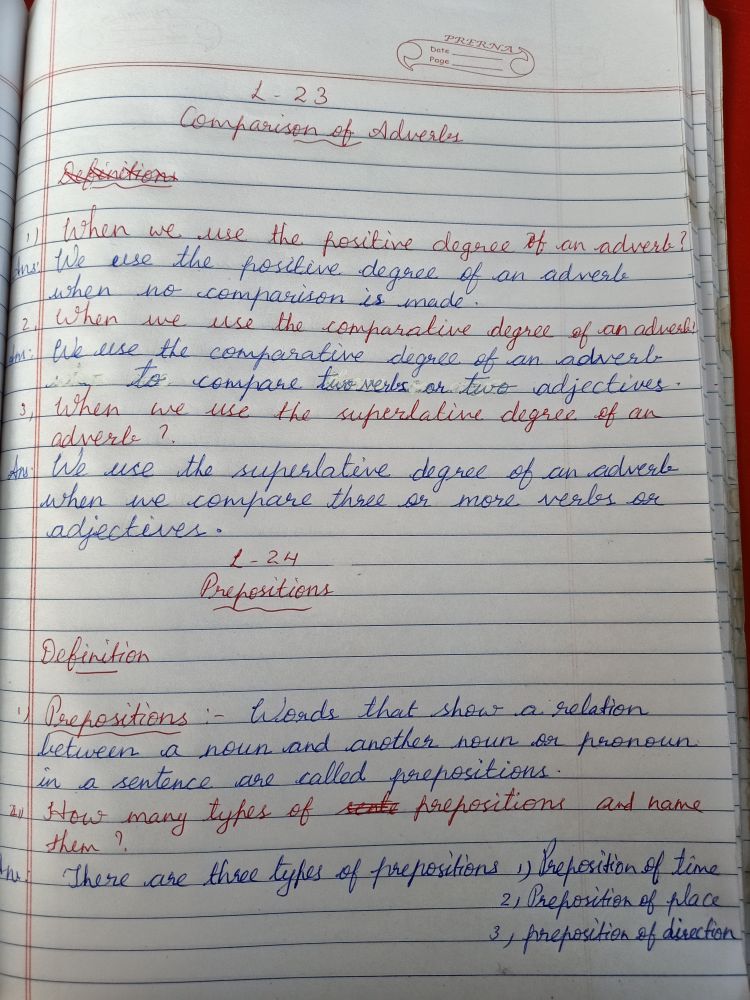 PRERNA
Date
Page
L - 23
Comparison of Adverbs
Definition
1) When we use the positive degree of an adverb?
Ans: We use the positive degree of an adverb
when no comparison is made.
2, When we use the comparative degree of an adverb?
Ans: We use the comparative degree of an adverb
to compare two verbs or two adjectives.
3, When we use the superlative degree of an
adverb ?.
Ans: We use the superlative degree of an adverb
when we compare three or more verbs or
adjectives.
L - 24
Prepositions
Definition
1, Prepositions :- Words that show a relation
between a noun and another noun or pronoun
in a sentence are called prepositions.
2,) How many types of prepositions and name
them ?
Ans: There are three types of prepositions 1) Preposition of time
2, Preposition of place
3, preposition of direction